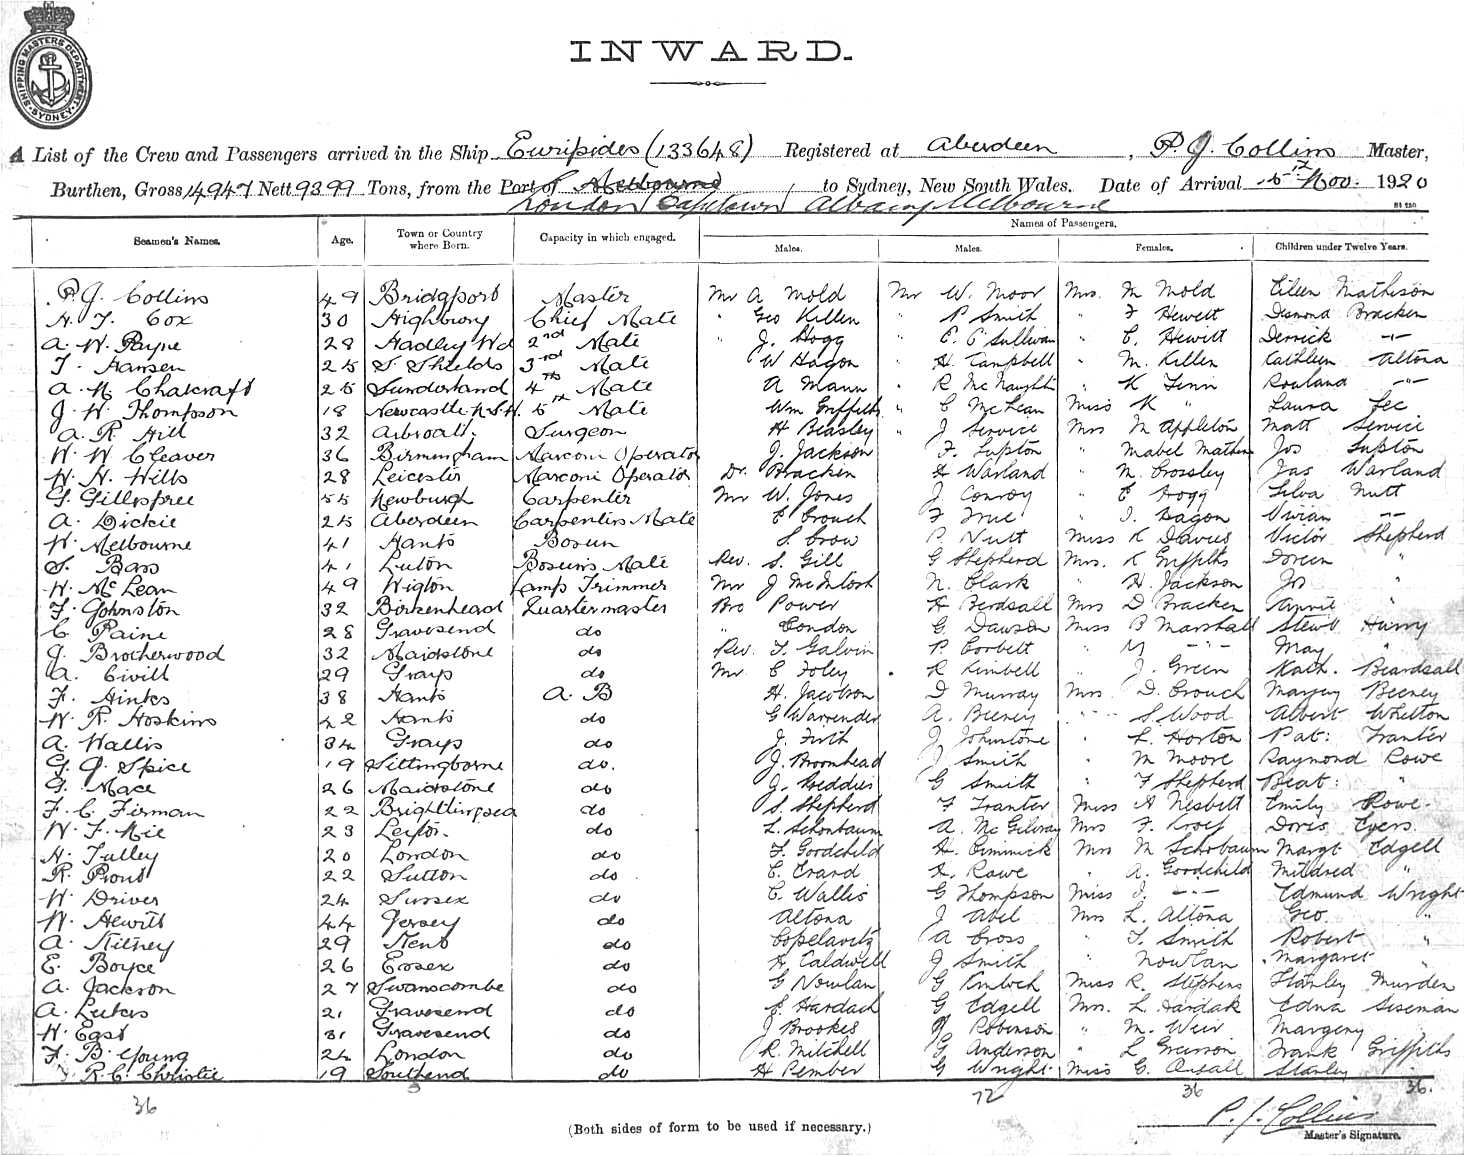 SHIPPING MASTERS DEPARTMENT SYDNEY
INWARD.
A List of the Crew and Passengers arrived in the Ship Euripides (133648) Registered at Aberdeen, P. J. Collins Master,
Burthen, Gross 14947 Nett 9399 Tons, from the Port of Melbourne to Sydney, New South Wales. Date of Arrival 15th Nov. 1920
London Capetown Albany Melbourne
Seamen's Names. Age. Town or Country where Born. Capacity in which engaged. Names of Passengers.
Males. Males. Females. Children under Twelve Years.
P. J. Collins 49 Bridgport Master Mr A Mold Mr W. Moor Mrs. M Mold Eileen Matheson
H. T. Cox 30 Highbury Chief Mate " Geo Killen " P Smith " F Hewett Desmond Bracken
A. W. Payne 28 Hadley Wd 2nd Mate " J. Hogg " E. O'Sullivan " E. Hewitt Derrick -"-
T. Hansen 25 S. Shields 3rd Mate W Hagon " H. Campbell " M. Killen Kathleen Altona
A. N. Chalcraft 25 Sunderland 4th Mate A Mann " R McNaughtin " K Finn Rowland -"-
J. W. Thompson 18 Newcastle N.S.W. 5th Mate Wm Griffiths " C McLean Miss K " Laura Fec
A. R. Hill 32 Arbroath Surgeon H Beasley " J Service Mrs M Appleton Matt Service
W. W Cleaver 36 Birmingham Marconi Operator J. Jackson F. Lupton " Mabel Mathew Jos Lupton
W. H. Hills 28 Leicester Marconi Operator Dr. Bracken H Warland " M. Crossley Jas Warland
G. Gillespree 55 Newburgh Carpenter Mr W. Jones J Conroy " E Hogg Silva Nutt
A. Dickie 25 Aberdeen Carpenters Mate E Crouch F True " I. Hagon Vivian -"-
W. Melbourne 41 Hants Bosun S Crow P Nutt Miss K Davies Victor Shepherd
S. Bass 41 Luton Bosuns Mate Rev. S. Gill G Shepherd Mrs. K Griffiths Doreen "
W. McLean 49 Wigton Lamp Trimmer Mr J McIntosh N. Clark " H. Jackson Jos "
F. Johnston 32 Birkenhead Quartermaster Bro Power H Berdsall Mrs D Bracken Annie "
C. Paine 28 Gravesend do " Condon G. Dawson Miss P Marshall Stewt Hurry
J. Brotherwood 32 Maidstone do Rev. T. Galvin P. Corbett " M -"- May "
A. Civill 29 Grays do Mr E Foley R Kimbell " J. Green Kath. Beardsall
F. Hinks 38 Hants A. B H. Jacobson D Murray Mrs. D. Crouch Margery Beeney
W. R. Hoskins 42 Hants do G Warrender A. Beeney " S. Wood Albert Whelton
A. Wallis 34 Grays do J. Firth J Johnstone " L. Horton Pat: Tranter
G. J. Spice 19 Sittingborne do. J. Broomhead J Smith " M Moore Raymond Rowe
G. Mace 26 Maidstone do J. Geddies G Smith " F Shepherd Beat: "
F. C. Firman 22 Brightlingsea do S. Shepherd F Tranter Miss A Nesbitt Emily Rowe.
W. F. Mie 23 Leyton do L. Schonbaum A. McGilvray Mrs F. Kroef Doris Eyers.
H. Tulley 20 London do F. Goodchild H. Piminick Mrs M Schobaum Margt Edgell
R. Prout 22 Sutton do E. Evard H. Rowe " A. Goodchild Mildred "
W. Driver 24 Sussex do C. Wallis G Thompson Miss J. -"- Edmund Wright
W. Hewitt 44 Jersey do Altona J Abel Mrs L. Altona Geo. "
A. Kitney 29 Kent do Copelavitz A Cross " T. Smith Robert "
E. Boyce 26 Essex do H Caldwell J Smith " Nowlan Margaret "
A. Jackson 27 Swanscombe do G Nowlan G Kinloch Miss R. Stephens Stanley Murden
A. Luters 21 Gravesend do E. Hardach G Edgell Mrs. L. Hardak Edna Siseman
H. East 31 Gravesend do J Brookes W Robinson " M. Weir Margeny
F. B. Young 24 London do R. Mitchell G Anderson " L Grierson Frank Griffiths
R. C. Christie 19 Southend do H Pember G Wright Miss G. Stanley
36 5 72 36 36.
P. J. Collins
(Both sides of form to be used if necessary.) Master's Signature.